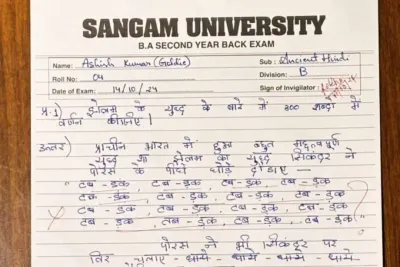 SANGAM UNIVERSITY
B.A SECOND YEAR BACK EXAM
Name: Ashish Kumar (Guddu) Sub: Ancient Hindi
Roll No: 04 Division: B
Date of Exam: 14/10/24 Sign of Invigilator:
प्र.1) झेलम के युद्ध के बारे में 300 शब्दों में
वर्णन कीजिए।
उत्तर) प्राचीन भारत में हुआ बहुत महत्वपूर्ण
युद्ध था झेलम का युद्ध सिकंदर ने
पोरस के पीछे घोड़े दौड़ाए —
"टब-डक, टब-डक, टब-डक, टब-डक,
टब-डक, टब-डक, टब-डक, टब-डक
टब-डक, टब-डक, टब-डक, टब-डक
टब-डक, टब-डक, टब-डक, टब-डक।"
पोरस ने भी सिकंदर पर
तिर चलाए - धाये - धाये - धाये - धाये-